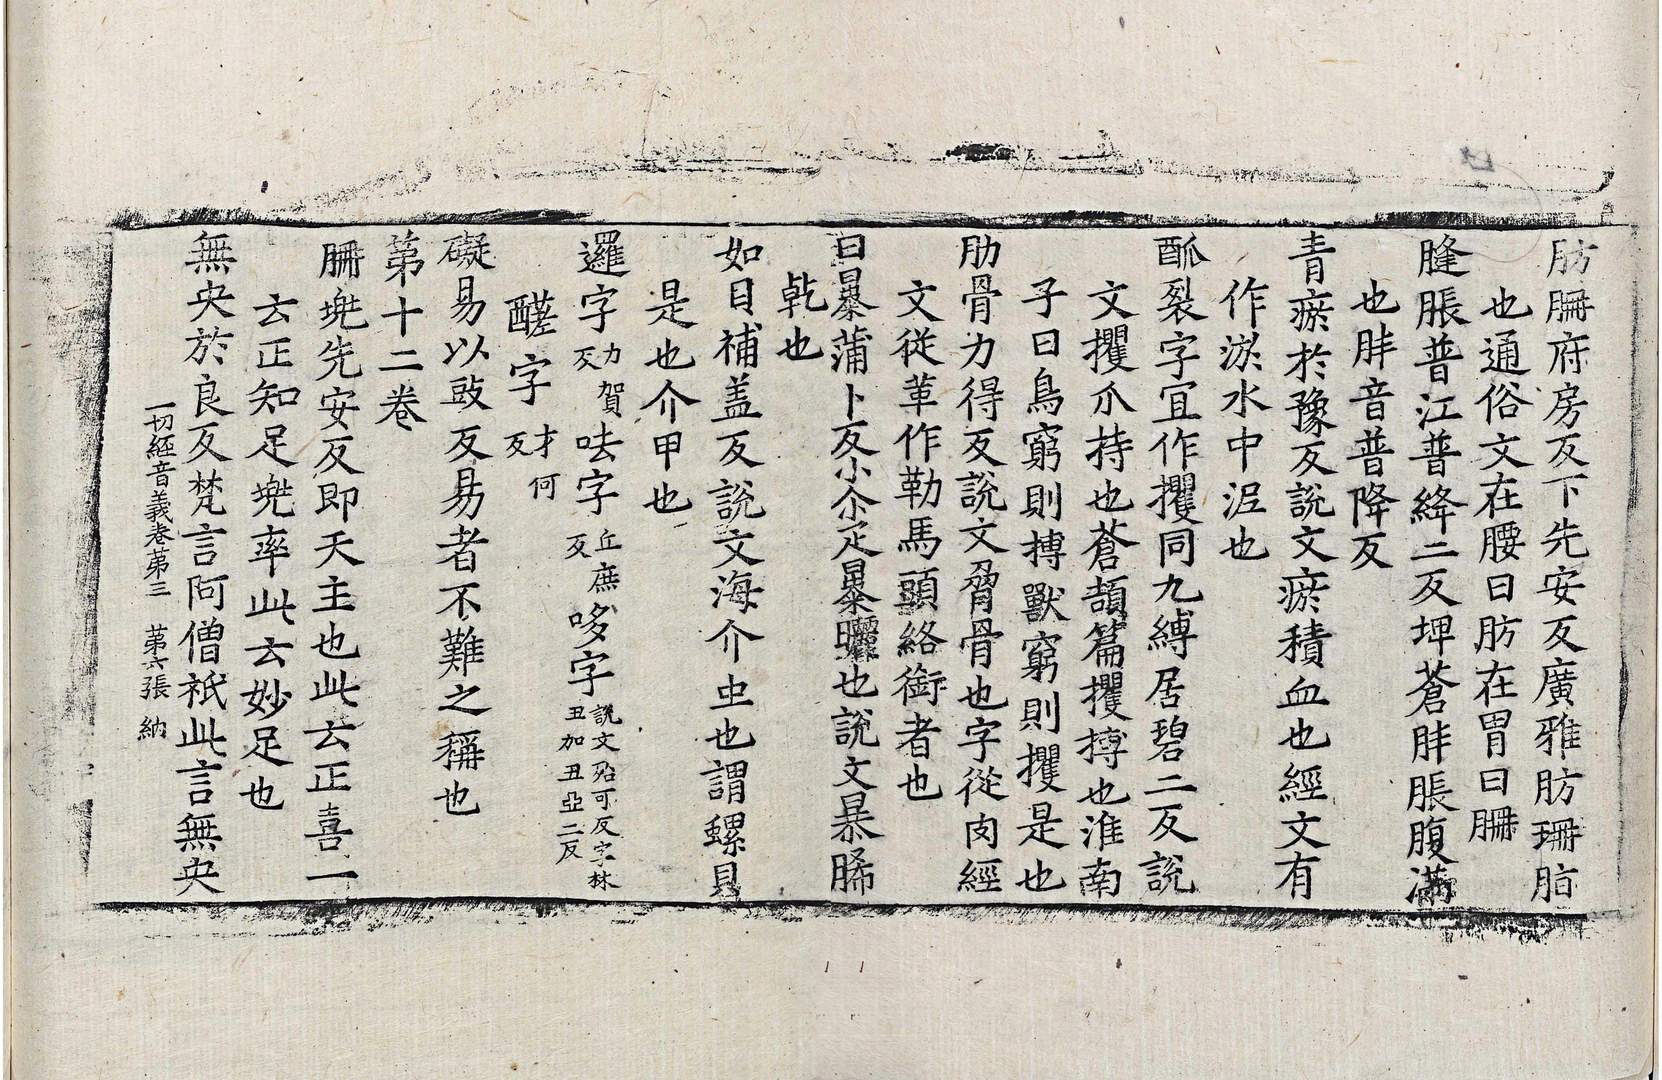 肪𦙱府房反下先安反廣雅肪珊脂
也通俗文在腰曰肪在胃曰𦙱
膖脹普江普絳二反埤蒼胮脹腹滿
也胮音普降反
青瘀於豫反說文瘀積血也經文有
作淤水中泥也
䤈裂字宜作攫同九縛居碧二反說
文攫爪持也蒼頡篇攫搏也淮南
子曰鳥窮則搏獸窮則攫是也
肋骨力得反說文脅骨也字從肉經
文從革作勒馬頭絡銜者也
日㬥蒲卜反小尒疋㬥曬也說文㬥晞
乾也
如貝補盖反說文海介虫也謂螺貝
是也介甲也
邏字力賀反呿字丘庶反哆字說文殆可反字林丑加丑亞二反
醝字才何反
礙易以豉反易者不難之稱也
第十二卷
𦙱兠先安反即天主也此云正喜一
云正知足兠率此云妙足也
無央於良反梵言阿僧祇此言無央
一切經音義卷第三　第六張　納